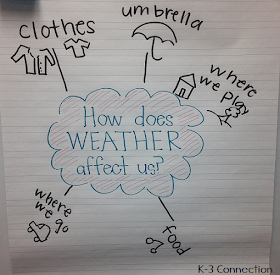 clothes
umbrella
where
we play
How does
WEATHER
affect us?
where
we go
food
K-3 Connection